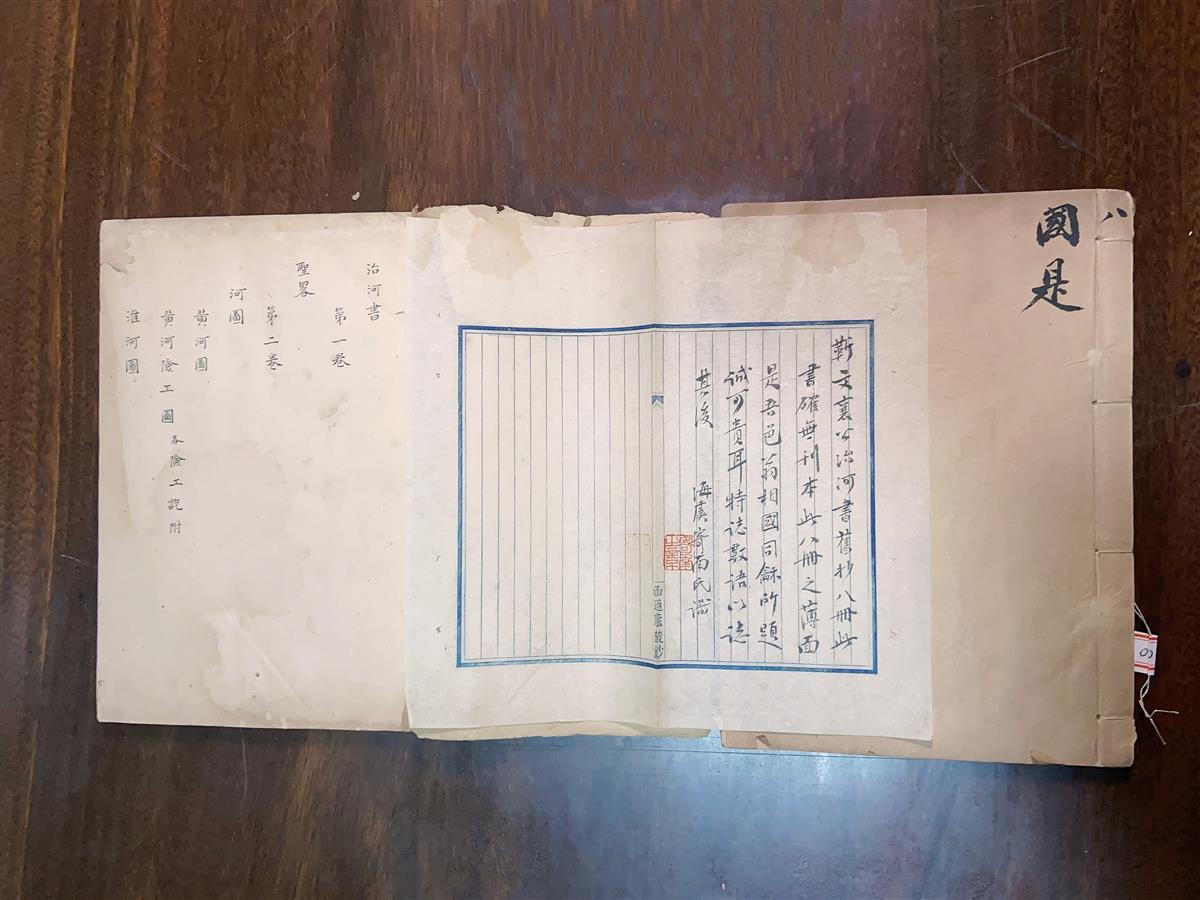 八
國是
靳文襄公治河書舊抄八冊此
書確無刊本此八冊之薄面
是吾邑翁相國同龢所題
誠可貴耳特誌數語以誌
其後 海虞
氏識
治河書 一
第一卷
聖畧
第二卷
河圖
黃河圖
黃河險工圖 各險工說附
淮河圖